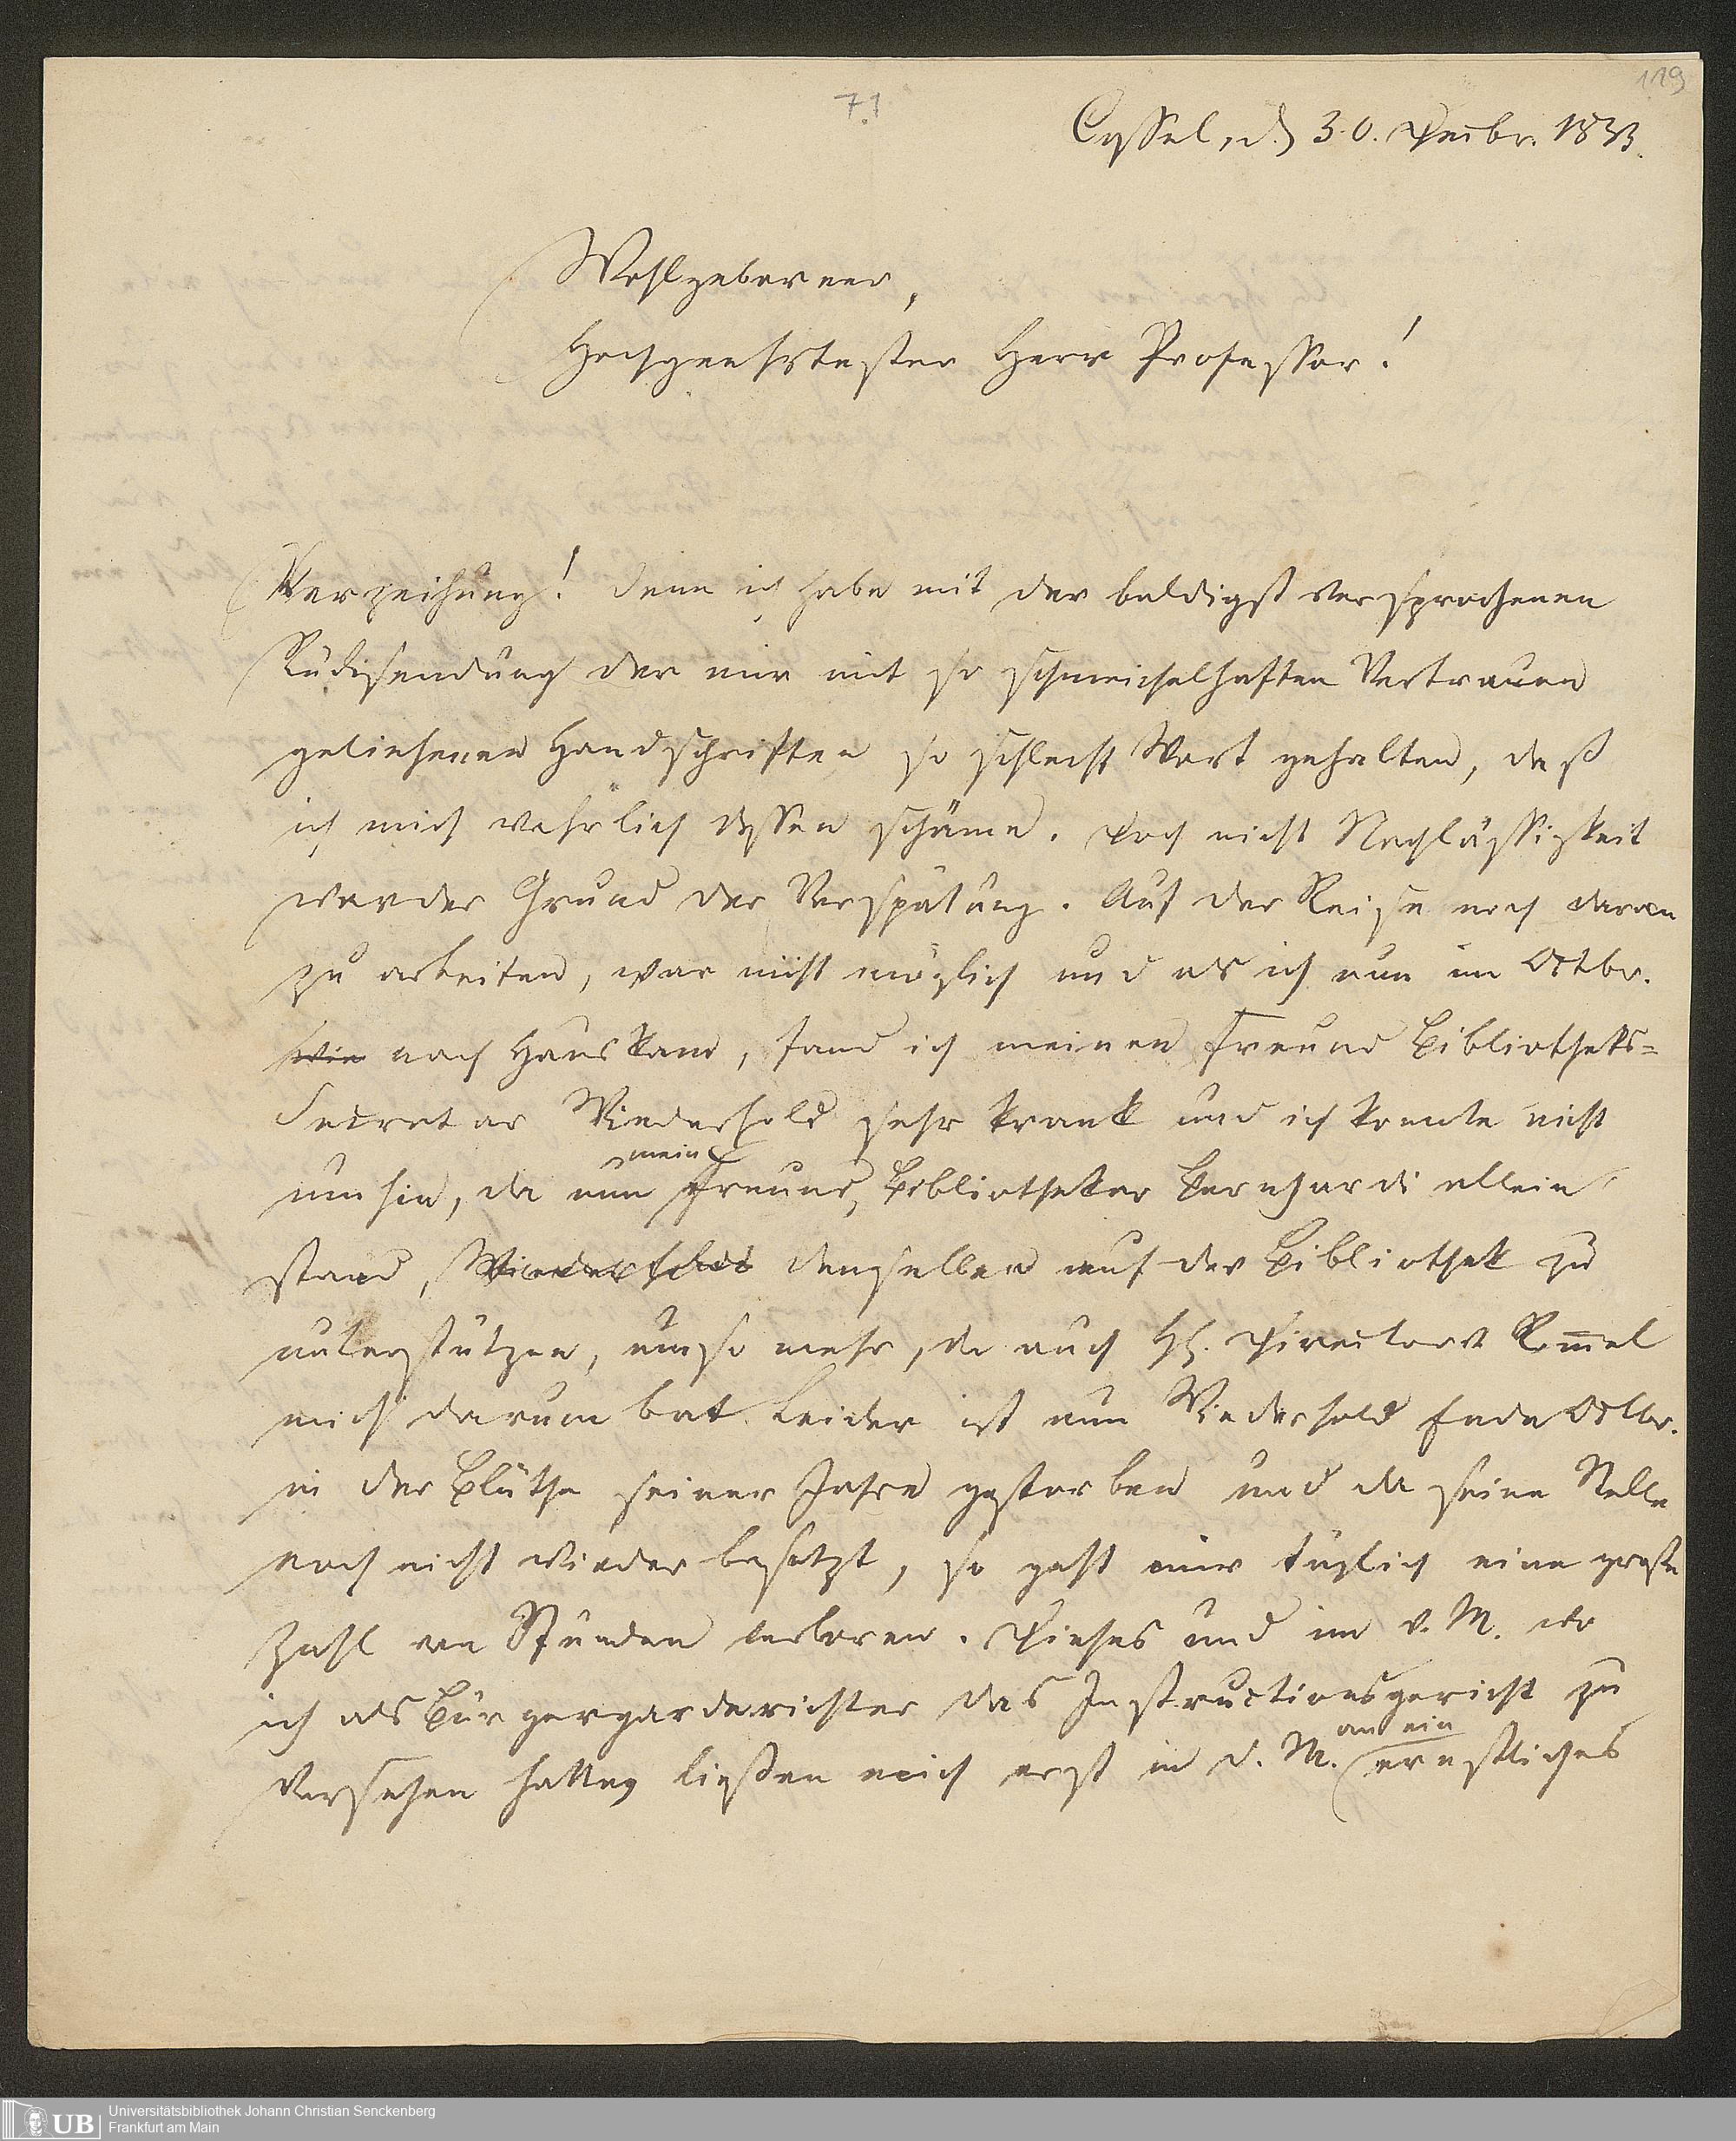 119
71
Cassel, d. 30. Decbr. 1833.
Wohlgeborner,
Hochgeehrtester Herr Professor!
Verzeihung! denn ich habe mit der baldigst versprochenen
Rücksendung der mir mit so schmeichelhaften Vertrauen
geliehenen Handschriften so schlecht Wort gehalten, daß
ich mich wahrlich dessen schäme. Doch nicht Nachlässigkeit
war der Grund der Verspätung. Auf der Reise noch daran
zu arbeiten, war nicht möglich und als ich nun im Octbr.
wie nach Haus kam, fand ich meinen Freund Bibliotheks-
Secretar Wiederhold sehr krank und ich konnte nicht
mein
umhin, da nun Freund, Bibliothekar Bernhardi allein
stand, Wiederhold denselben auf der Bibliothek zu
unterstützen, umso mehr, da auch H. Director v Rom̅el
mich darum bat. Leider ist nun Wiederhold Ende Octbr.
in der Blüthe seiner Jahre gestorben und da seine Stelle
noch nicht wieder besetzt, so geht mir täglich eine große
Zahl von Stunden verloren. Dieses und im v. M. wo
ich als Bürgergarderichter das Instructionsgericht zu
an ein
versehen hatte, ließen mich erst in d. M. ernstliches
UB
Universitätsbibliothek Johann Christian Senckenberg
Frankfurt am Main